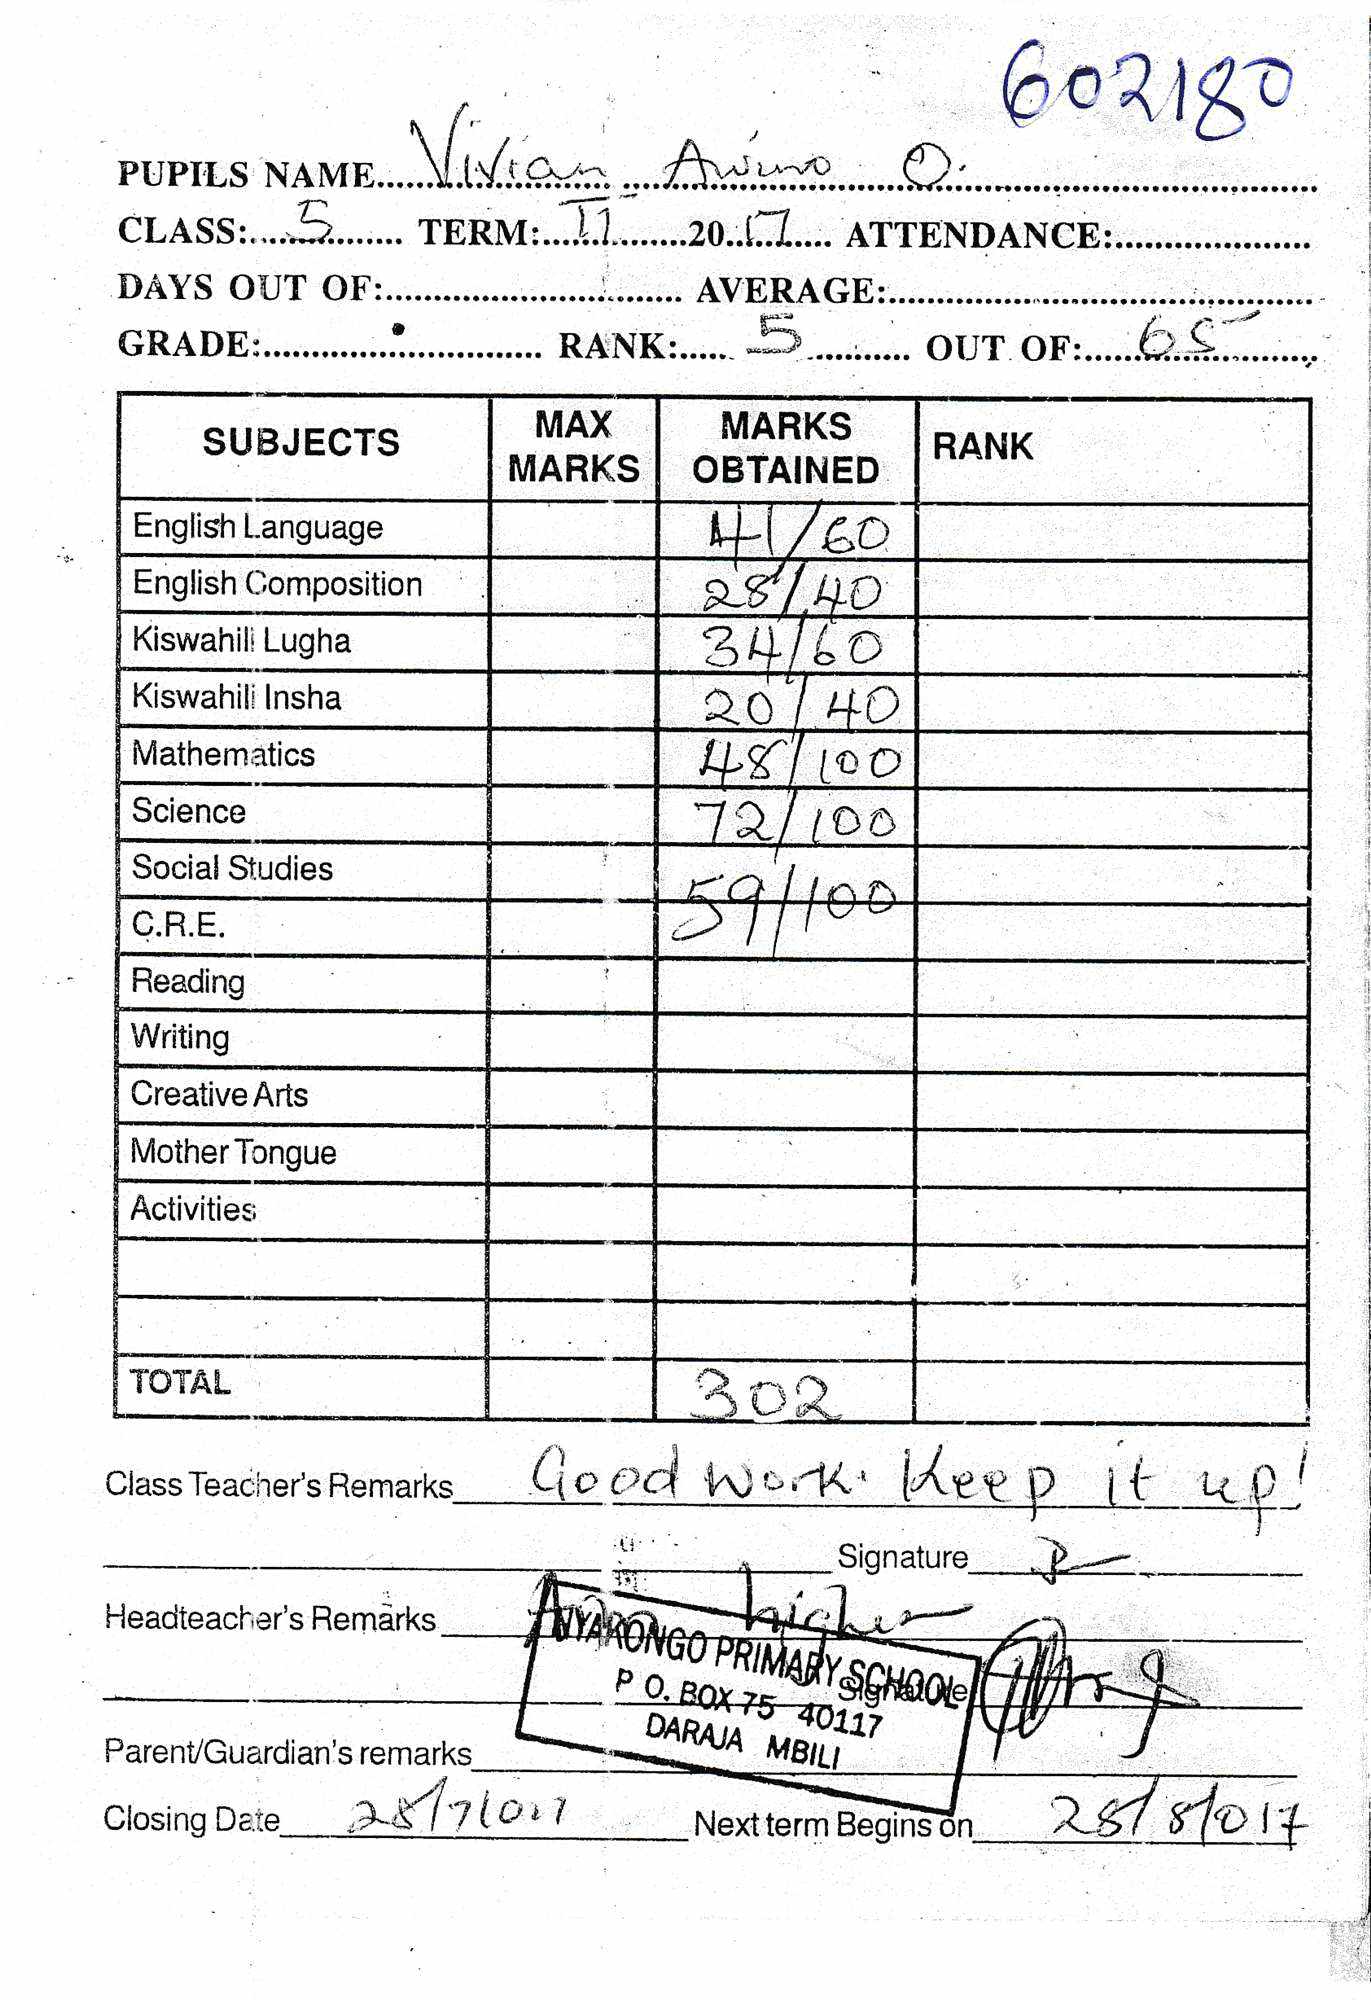 602180
PUPILS NAME Vivian Awino O.
CLASS: 5 TERM: II 2017 ATTENDANCE:
DAYS OUT OF: AVERAGE:
GRADE: RANK: 5 OUT OF: 65
SUBJECTS MAX MARKS MARKS OBTAINED RANK
English Language 41/60
English Composition 28/40
Kiswahili Lugha 34/60
Kiswahili Insha 20/40
Mathematics 48/100
Science 72/100
Social Studies 59/100
C.R.E.
Reading
Writing
Creative Arts
Mother Tongue
Activities
TOTAL 302
Class Teacher's Remarks Good work. Keep it up!
Signature
Headteacher's Remarks higher
NYAKONGO PRIMARY SCHOOL
Signature
P O. BOX 75 40117
DARAJA MBILI
Parent/Guardian's remarks
Closing Date 28/7/017 Next term Begins on 28/8/017